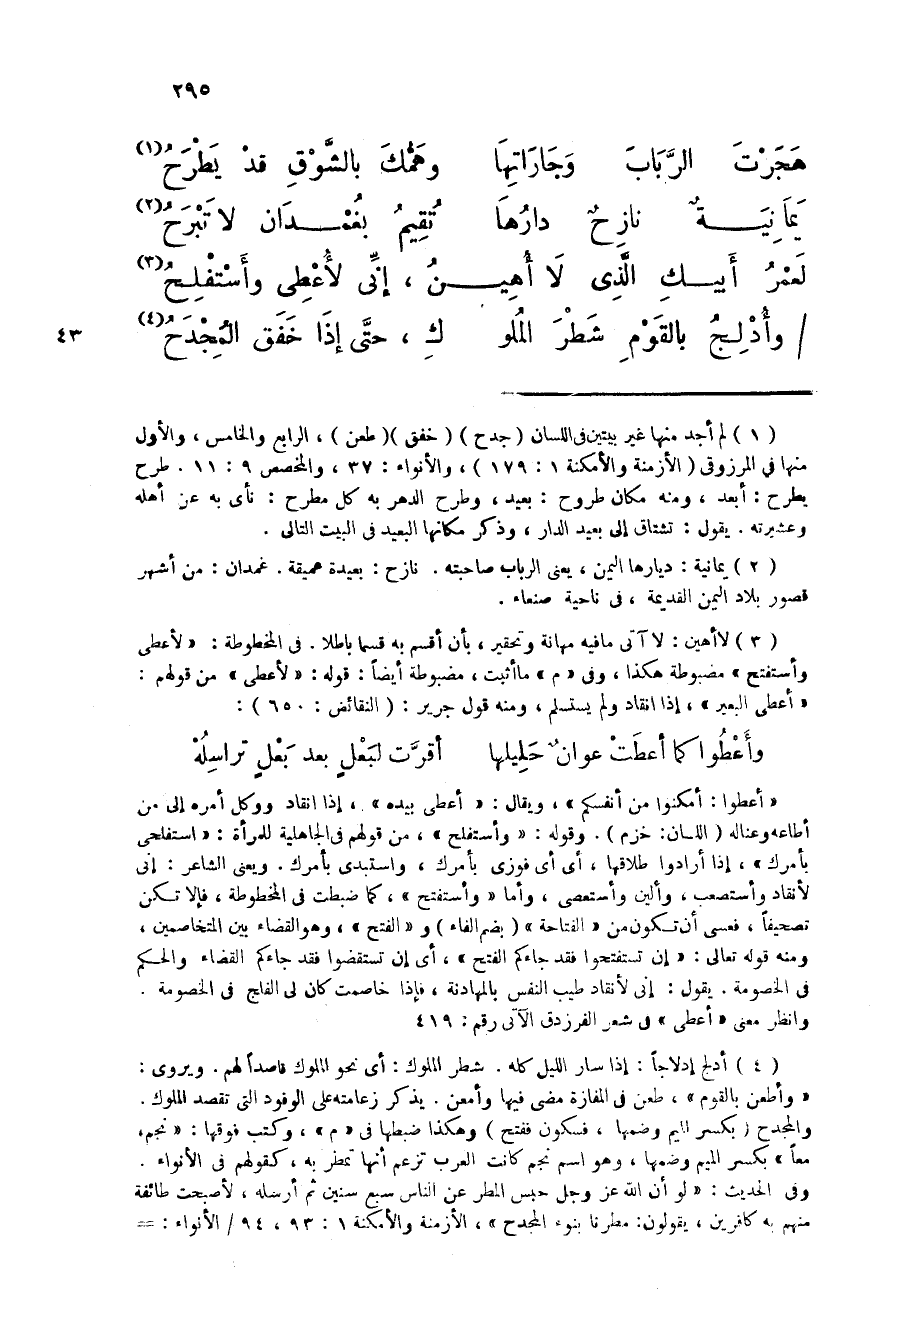 ٢٩٥
هَجَرْتَ الرَّبَابَ وَجَارَاتِهَا وهَمُّكَ بالشَّوْقِ قدْ يَطْرَحُ(١)
يَمَانِيَةٌ نازِحٌ دارُهَا تُقِيمُ بغُمْدَان لا تَبْرَحُ(٢)
لَعَمْرُ أَبِيكِ الَّذِى لَا أُهِينُ ، إِنِّى لَأُعْطِى وأَسْتَفْلِحُ(٣)
/ وأُدْلِجُ بالقَوْمِ شَطْرَ المُلُو كِ ، حتَّى إذَا خَفَق المُِجْدَحُ(٤)
٤٣
( ١ ) لم أجد منها غير بيتين فى اللسان ( جدح ) ( خفق )( طعن ) ، الرابع والخامس ، والأول
منها في المرزوقى ( الأزمنة والأمكنة ١ : ١٧٩ ) ، والأنواء : ٣٧ ، والمخصص ٩ : ١١ . طرح
يطرح : أبعد ، ومنه مكان طروح : بعيد ، وطرح الدهر به كل مطرح : نأى به عن أهله
وعشيرته . يقول : تشتاق إلى بعيد الدار ، وذكر مكانها البعيد فى البيت التالى .
( ٢ ) يمانية : ديارها اليمن ، يعنى الرباب صاحبته . نازح : بعيدة عميقة . غمدان : من أشهر
قصور بلاد اليمن القديمة ، فى ناحية صنعاء .
( ٣ ) لا أهين : لا آتى ما فيه مهانة وتحقير ، بأن أقسم به قسما باطلا . فى المخطوطة : « لأعطى
وأستفتح » مضبوطة هكذا ، وفى « م » ما أثبت ، مضبوطة أيضاً : قوله : « لأعطى » من قولهم :
« أعطى البعير » ، إذا انقاد ولم يستسلم ، ومنه قول جرير : ( النقائض : ٦٥٠ ) :
وأَعْطُوا كما أعطَتْ عوانٌ حَلِيلها أقرَّت لبَعْلٍ بعد بَعْلٍ تراسِلُهْ
« أعطوا : أمكنوا من أنفسكم » ، ويقال : « أعطى بيده » ، إذا انقاد ووكل أمره إلى من
أطاعه وعناله ( اللسان : خزم ) . وقوله : « وأستفلح » ، من قولهم فى الجاهلية للمرأة : « استفلحى
بأمرك » ، إذا أرادوا طلاقها ، أى أى فوزى بأمرك ، واستبدى بأمرك . ويعنى الشاعر : إنى
لأنقاد وأستصعب ، وألين وأستعصى ، وأما « وأستفتح » ، كما ضبطت فى المخطوطة ، فإلا تكن
تصحيفاً ، فعسى أن تكون من « الفتاحة » ( بضم الفاء ) و « الفتح » ، وهو القضاء بين المتخاصمين ،
ومنه قوله تعالى : « إن تستفتحوا فقد جاءكم الفتح » ، أى إن تستقضوا فقد جاءكم القضاء والحكم
فى الخصومة . يقول : إنى لأنقاد طيب النفس بالمهادنة ، فإذا خاصمت كان لى الفلج فى الخصومة .
وانظر معنى « أعطى » فى شعر الفرزدق الآتى رقم : ٤١٩
( ٤ ) أدلج إدلاجاً : إذا سار الليل كله . شطر الملوك : أى نحو الملوك قاصداً لهم . ويروى :
« وأطعن بالقوم » ، طعن فى المفازة مضى فيها وأمعن . يذكر زعامته على الوفود التى تقصد الملوك .
والمجدح ( بكسر الميم وضمها ، فسكون ففتح ) وهكذا ضبطها فى « م » ، وكتب فوقها : « نجم ،
معاً » بكسر الميم وضمها ، وهو اسم نجم كانت العرب تزعم أنها تمطر به ، كقولهم فى الأنواء .
وفى الحديث : « لو أن الله عز وجل حبس المطر عن الناس سبع سنين ثم أرسله ، لأصبحت طائفة
منهم به كافرين ، يقولون : مطرنا بنوء المجدح » ، الأزمنة والأمكنة ١ : ٩٣ ، ٩٤ / الأنواء : ==